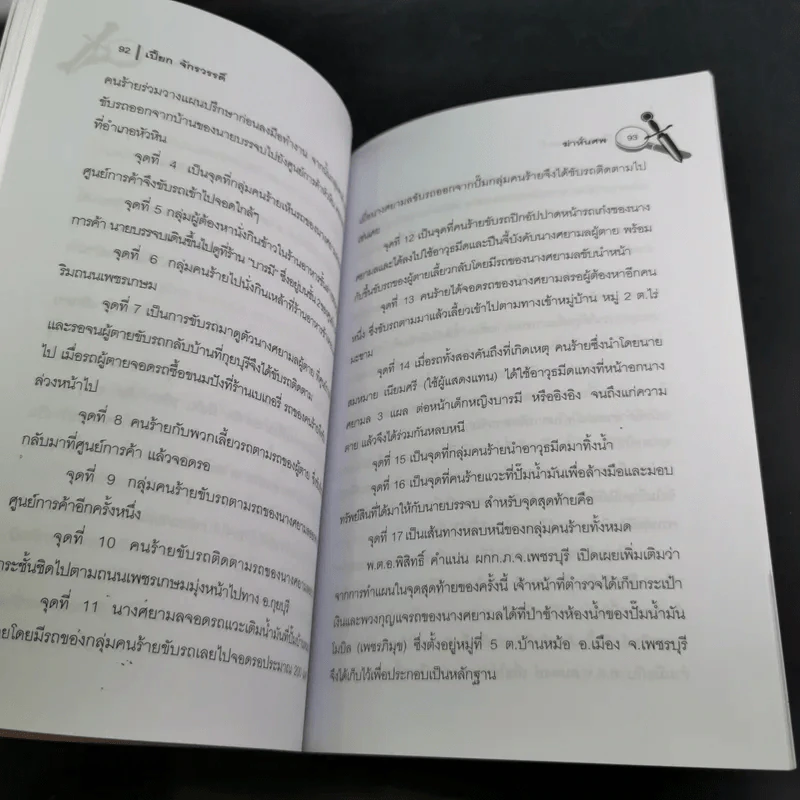 92 | เปี๊ยก จักรวรรดิ์
คนร้ายร่วมวางแผนปรึกษาก่อนลงมือทำงาน
ขับรถออกจากบ้านของนายบรรจบไปยังศูนย์การค้า
ที่อำเภอหัวหิน
จุดที่ 4 เป็นจุดที่กลุ่มคนร้ายเห็นรถของนาง
ศูนย์การค้าจึงขับรถเข้าไปจอดใกล้ๆ
จุดที่ 5 กลุ่มผู้ต้องหานั่งกินข้าวในร้านอาหาร
การค้า นายบรรจบเดินขึ้นไปดูที่ร้าน "บารมี" ซึ่งอยู่บนชั้น 2
จุดที่ 6 กลุ่มคนร้ายไปนั่งกินเหล้าที่ร้านอาหาร
ริมถนนเพชรเกษม
จุดที่ 7 เป็นการขับรถมาดูตัวนางศยามลผู้ตาย
และรอจนผู้ตายขับรถกลับบ้านที่กุยบุรีจึงได้ขับรถติดตาม
ไป เมื่อรถผู้ตายจอดรถซื้อขนมปังที่ร้านเบเกอรี่ รถของคนร้าย
ล่วงหน้าไป
จุดที่ 8 คนร้ายกับพวกเลี้ยวรถตามรถของผู้ตาย
กลับมาที่ศูนย์การค้า แล้วจอดรอ
จุดที่ 9 กลุ่มคนร้ายขับรถตามรถของนางศยามล
ศูนย์การค้าอีกครั้งหนึ่ง
จุดที่ 10 คนร้ายขับรถติดตามรถของนางศยามล
กระชั้นชิดไปตามถนนเพชรเกษมมุ่งหน้าไปทาง อ.กุยบุรี
จุดที่ 11 นางศยามลจอดรถแวะเติมน้ำมันที่ปั๊ม
โดยมีรถของกลุ่มคนร้ายขับรถเลยไปจอดรอประมาณ 200
ฆ่าหั่นศพ 93
เมื่อนางศยามลขับรถออกจากปั๊มกลุ่มคนร้ายจึงได้ขับรถติดตามไป
เช่นเคย
จุดที่ 12 เป็นจุดที่คนร้ายขับรถปิกอัปปาดหน้ารถเก๋งของนาง
ศยามลและได้ลงไปใช้อาวุธมีดและปืนจี้บังคับนางศยามลผู้ตาย พร้อม
กับขึ้นขับรถของผู้ตายเลี้ยวกลับโดยมีรถของนางศยามลขับนำหน้า
จุดที่ 13 คนร้ายได้จอดรถของนางศยามลรอผู้ต้องหาอีกคน
หนึ่ง ซึ่งขับรถตามมาแล้วเลี้ยวเข้าไปตามทางเข้าหมู่บ้าน หมู่ 2 ต.ไร่
มะขาม
จุดที่ 14 เมื่อรถทั้งสองคันถึงที่เกิดเหตุ คนร้ายซึ่งนำโดยนาย
สมหมาย เนียมศรี (ใช้ผู้แสดงแทน) ได้ใช้อาวุธมีดแทงที่หน้าอกนาง
ศยามล 3 แผล ต่อหน้าเด็กหญิงบารมี หรืออิงอิง จนถึงแก่ความ
ตาย แล้วจึงได้ร่วมกันหลบหนี
จุดที่ 15 เป็นจุดที่กลุ่มคนร้ายนำอาวุธมีดมาทิ้งน้ำ
จุดที่ 16 เป็นจุดที่คนร้ายแวะที่ปั๊มน้ำมันเพื่อล้างมือและมอบ
ทรัพย์สินที่ได้มาให้กับนายบรรจบ สำหรับจุดสุดท้ายคือ
จุดที่ 17 เป็นเส้นทางหลบหนีของกลุ่มคนร้ายทั้งหมด
พ.ต.อ.พิสิทธิ์ คำแน่น ผกก.ภ.จ.เพชรบุรี เปิดเผยเพิ่มเติมว่า
จากการทำแผนในจุดสุดท้ายของครั้งนี้ เจ้าหน้าที่ตำรวจได้เก็บกระเป๋า
เงินและพวงกุญแจรถของนางศยามลได้ที่ป่าข้างห้องน้ำของปั๊มน้ำมัน
โมบิล (เพชรภิมุข) ซึ่งตั้งอยู่หมู่ที่ 5 ต.บ้านหม้อ อ.เมือง จ.เพชรบุรี
จึงได้เก็บไว้เพื่อประกอบเป็นหลักฐาน